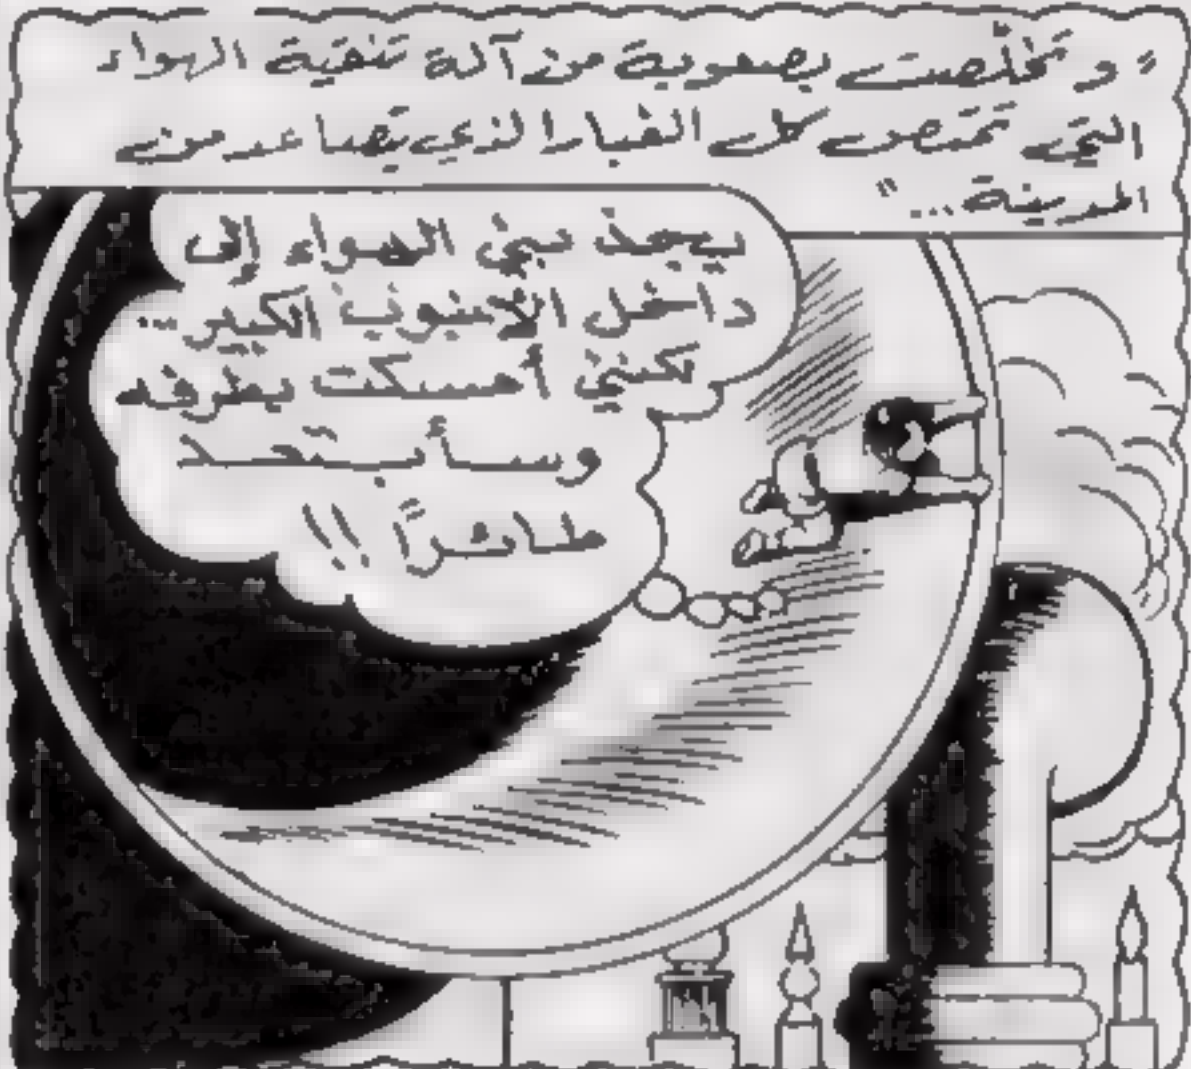 "وتخلّصت بصعوبة من آلة تنقية الهواء
التي تمتص كل الغبار الذي يتصاعد من
المدينة..."
يجذبني الهواء إلى
داخل الأنبوب الكبير...
لكنني أمسكت بطرفه
وسأبتعد
طائرًا!!